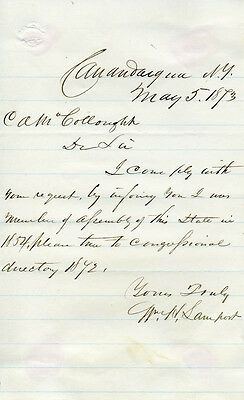 Canandaigua N.Y.
May 5, 1873
C A McCollought
Dr Sir
I comply with
your request, by infoming you I was
Member of Assembly of this State in
1854, please turn to Congressional
directory 1872.
Yours Truly
Wm. H. Lamport